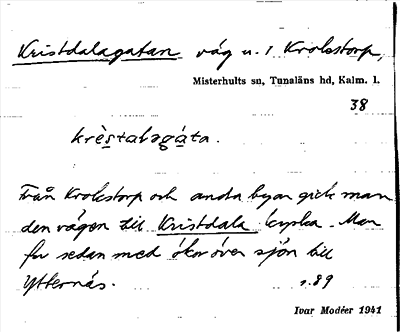 Kristdalagatan väg u. 1 Krokstorp,
Misterhults sn, Tunaläns hd, Kalm. l.
38
krèstalagáta.
Från Krokstorp och andra byar gick man
den vägen till Kristdala kyrka. Man
for sedan med ökor över sjön till
Ytternäs. s. 89
Ivar Modéer 1941